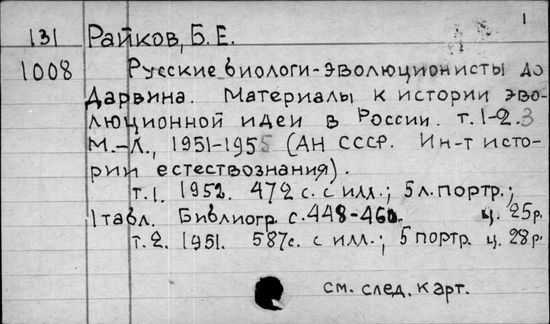 1
131 Райков, Б. Е.
1008 Русские биологи-эволюционисты до
Дарвина. Материалы к истории эво-
люционной идеи в России. т. 1-2.3
М.-Л., 1951-1955 (АН СССР. Ин-т исто-
рии естествознания).
т. 1. 1952. 472 с. с илл.; 5 л. портр.;
1 табл. Библиогр. с. 448-460. ц. 25р.
т. 2. 1951. 587с. с илл.; 5 портр. ц. 28р.
см. след. карт.